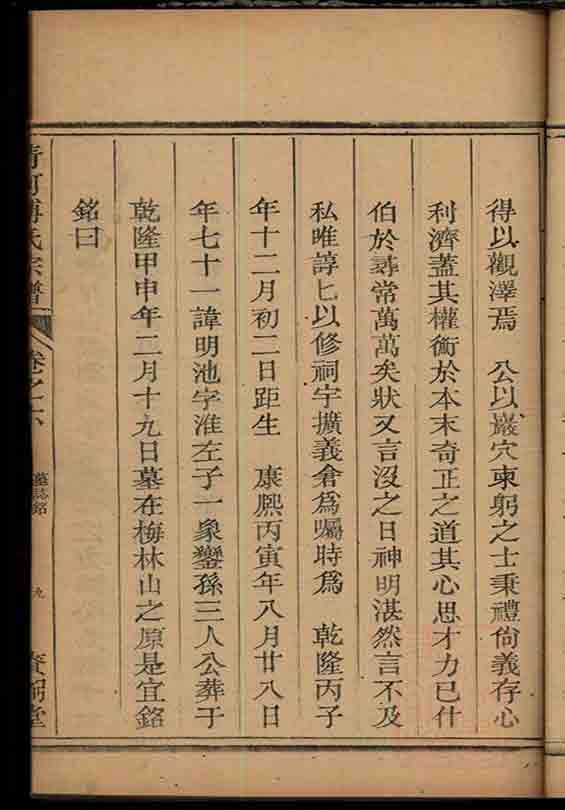 得以觀澤焉　公以巖穴束躬之士秉禮尙義存心
利濟葢其權衡於本末奇正之道其心思才力已什
伯於尋常萬萬矣狀又言沒之日神明湛然言不及
私唯諄匕以修祠宇擴義倉爲囑時爲　乾隆丙子
年十二月初二日距生　康熙丙寅年八月廿八日
年七十一諱明池字淮左子一象鑾孫三人公葬于
乾隆甲申年二月十九日墓在梅林山之原是宜銘
銘曰
氏宗譜
卷之六
墓誌銘
九
堂